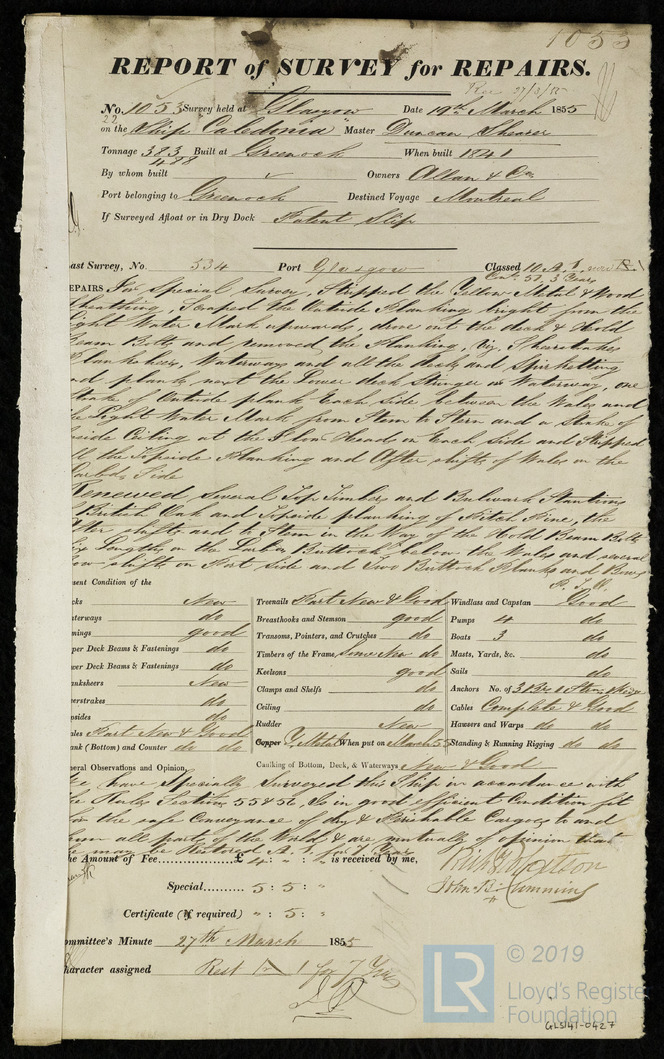 1053
REPORT of SURVEY for REPAIRS.
Rec 27/3/55
No. 1053 Survey held at Glasgow Date 19th March 1855
22
on the Ship "Caledonia" Master Duncan Shearer
Tonnage 383 Built at Greenock When built 1841
488
By whom built Owners Allan & Co
Port belonging to Greenock Destined Voyage Montreal
If Surveyed Afloat or in Dry Dock Patent Slip
ast Survey, No. 534 Port Glasgow Classed 10 A 1
Cont. 51, 3 Years
EPAIRS For Special Survey, Stripped the Yellow Metal & Wood
heathing, Scraped the Outside Planking bright from the
ight Water Mark upwards, drove out the deck & Hold
eam Bolts and removed the Planking, Viz, Sheerstrakes
lanksheers, Waterways and all the deck and Spirketting
nd plank next the Lower deck Stringer or Waterway, one
trake of Outside plank Each Side between the Wales and
e Light Water Mark from Stem to Stern and a Strake of
nside Ceiling at the Floor Heads on Each Side and Stripped
ll the Topside Planking and After shifts of Wales on the
Larbd. Side
Renewed Several Top Timbers and Bulwark Stantions
British Oak and Topside planking of Pitch Pine, the
fter shifts and to Stem in the Way of the Hold Beam Bolts
ix Lengths on the Larbd Buttock below the Wales and several
ow shifts on Port Side and Two Buttock Planks and Bow
P.T.W.
sent Condition of the
cks New Treenails Part New & Good Windlass and Capstan Good
aterways do Breasthooks and Stemson good Pumps 4 do
mings good Transoms, Pointers, and Crutches do Boats 3 do
pper Deck Beams & Fastenings do Timbers of the Frame, Some New do Masts, Yards, &c. do
ower Deck Beams & Fastenings do Keelsons good Sails do
anksheers New Clamps and Shelfs do Anchors No. of 3 Bro 1 Stream & Kedge
eerstrakes do Ceiling do Cables Complete & Good
psides do Rudder New Hawsers and Warps do do
ales Part New & Good Copper Y. Metal When put on March 55 Standing & Running Rigging do do
ank (Bottom) and Counter do do Caulking of Bottom, Deck, & Waterways New & Good
neral Observations and Opinion,
We have Specially Surveyed this Ship in accordance with
he Rules Section 55 & 56, Is in good efficient Condition fit
for the safe Conveyance of dry & Perishable Cargoes to and
from all parts of the World & are mutually of opinion that
he may be Restored A. 1 for 7 Years
he Amount of Fee £ 4 : " : " is received by me,
Special 5 : 5 : "
Certificate (if required) " : 5 : "
John R. Cumming
ommittee's Minute 27th March 1855
haracter assigned Rest A 1 for 7 Yrs
LR
© 2019
Lloyd's Register
Foundation
GLS141-0427